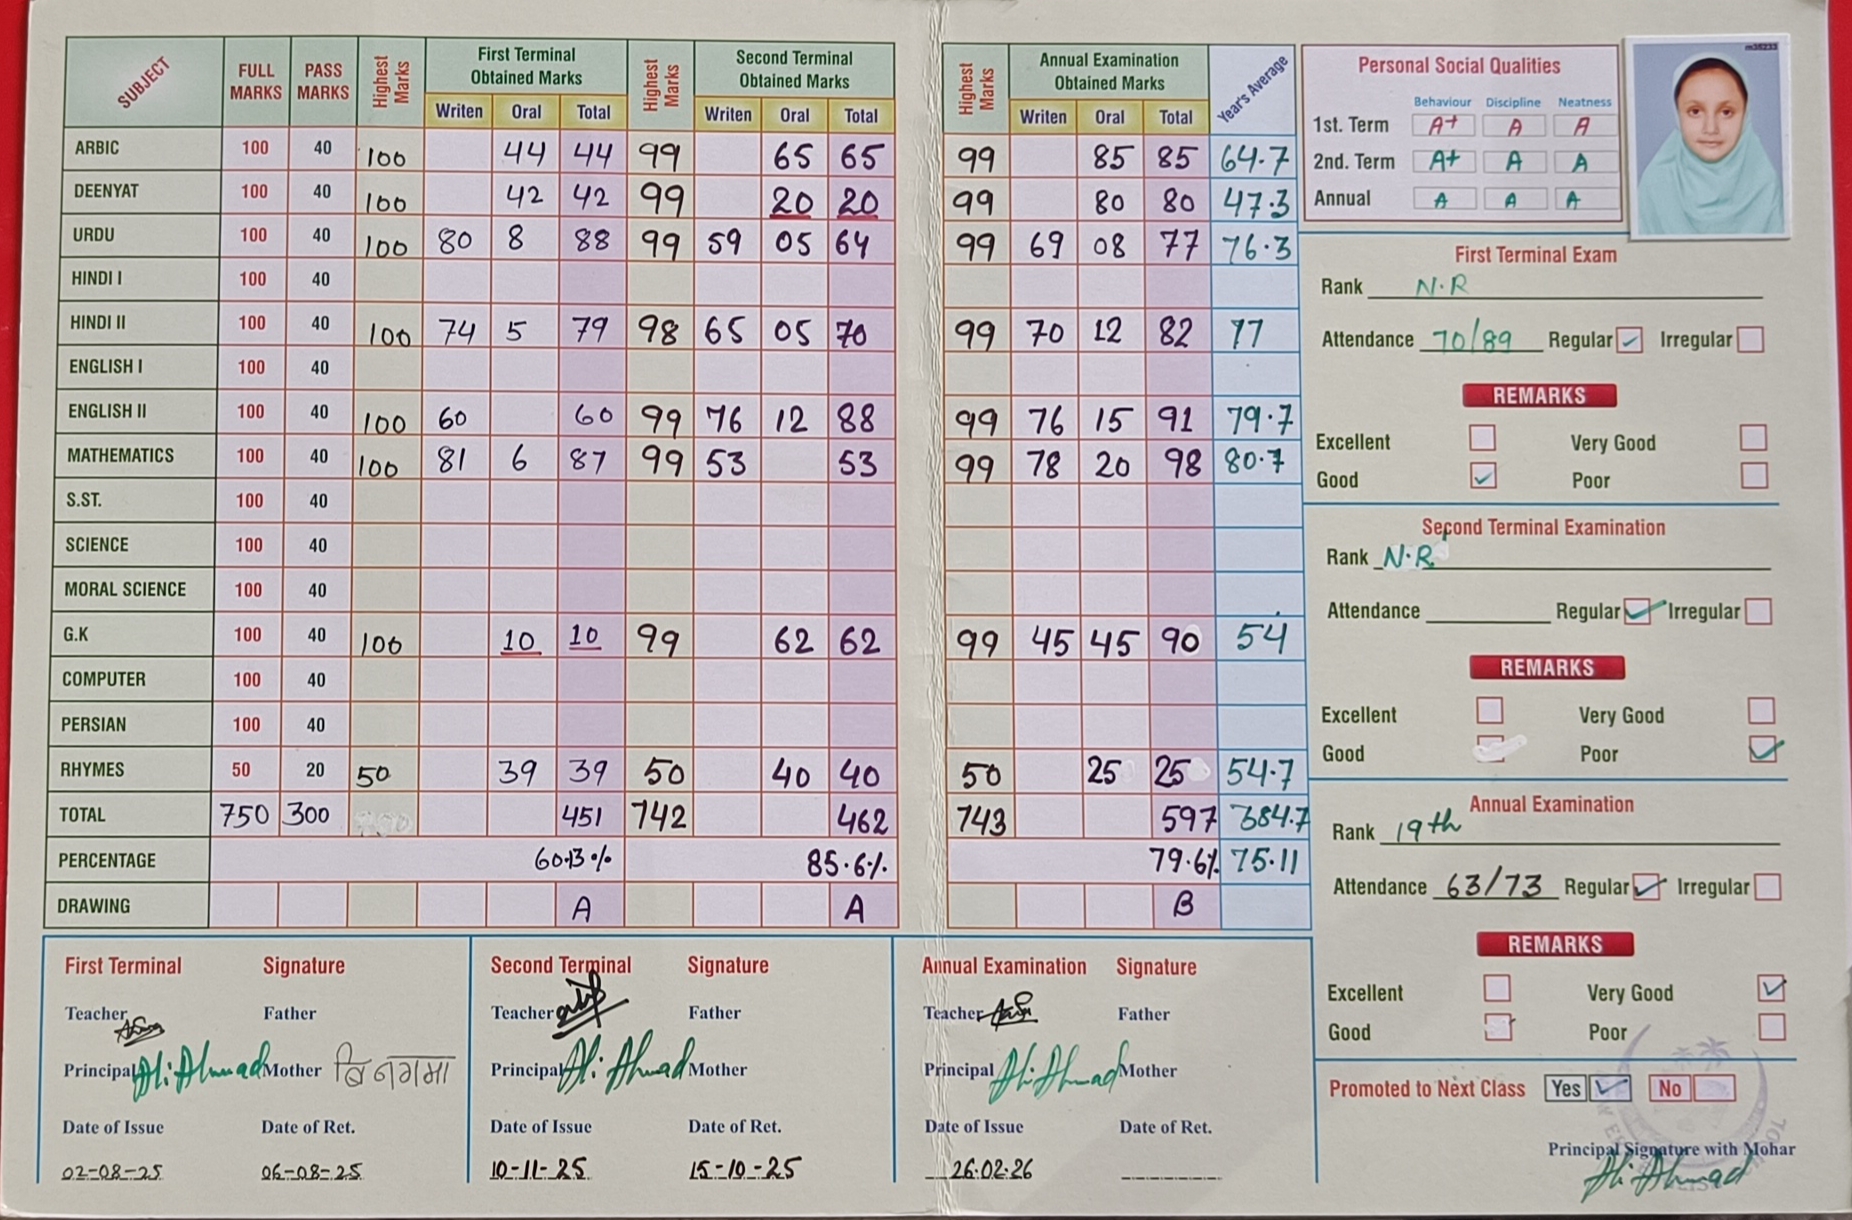 SUBJECT FULL MARKS PASS MARKS Highest Marks First Terminal Obtained Marks Highest Marks Second Terminal Obtained Marks Highest Marks Annual Examination Obtained Marks Year's Average
Writen Oral Total Writen Oral Total Writen Oral Total
ARBIC 100 40 100 44 44 99 65 65 99 85 85 64.7
DEENYAT 100 40 100 42 42 99 20 20 99 80 80 47.3
URDU 100 40 100 80 8 88 99 59 05 64 99 69 08 77 76.3
HINDI I 100 40
HINDI II 100 40 100 74 5 79 98 65 05 70 99 70 12 82 77
ENGLISH I 100 40
ENGLISH II 100 40 100 60 60 99 76 12 88 99 76 15 91 79.7
MATHEMATICS 100 40 100 81 6 87 99 53 53 99 78 20 98 80.7
S.ST. 100 40
SCIENCE 100 40
MORAL SCIENCE 100 40
G.K 100 40 100 10 10 99 62 62 99 45 45 90 54
COMPUTER 100 40
PERSIAN 100 40
RHYMES 50 20 50 39 39 50 40 40 50 25 25 54.7
TOTAL 750 300 451 742 462 743 597 384.7
PERCENTAGE 60.13% 85.6% 79.6% 75.11
DRAWING A A B
Personal Social Qualities
Behaviour Discipline Neatness
1st. Term A+ A A
2nd. Term A+ A A
Annual A A A
m35233
First Terminal Exam
Rank N.R
Attendance 70/89 Regular ✓ Irregular
REMARKS
Excellent Very Good
Good ✓ Poor
Second Terminal Examination
Rank N.R.
Attendance Regular ✓ Irregular
REMARKS
Excellent Very Good
Good Poor ✓
Annual Examination
Rank 19th
Attendance 63/73 Regular ✓ Irregular
REMARKS
Excellent Very Good ✓
Good Poor
Promoted to Next Class Yes ✓ No
Principal Signature with Mohar
Ali Ahmad
First Terminal Signature
Teacher Father
Principal Ali Ahmad Mother वि नगमा
Date of Issue Date of Ret.
02-08-25 06-08-25
Second Terminal Signature
Teacher Father
Principal Ali Ahmad Mother
Date of Issue Date of Ret.
10-11-25 15-10-25
Annual Examination Signature
Teacher Father
Principal Ali Ahmad Mother
Date of Issue Date of Ret.
26.02.26